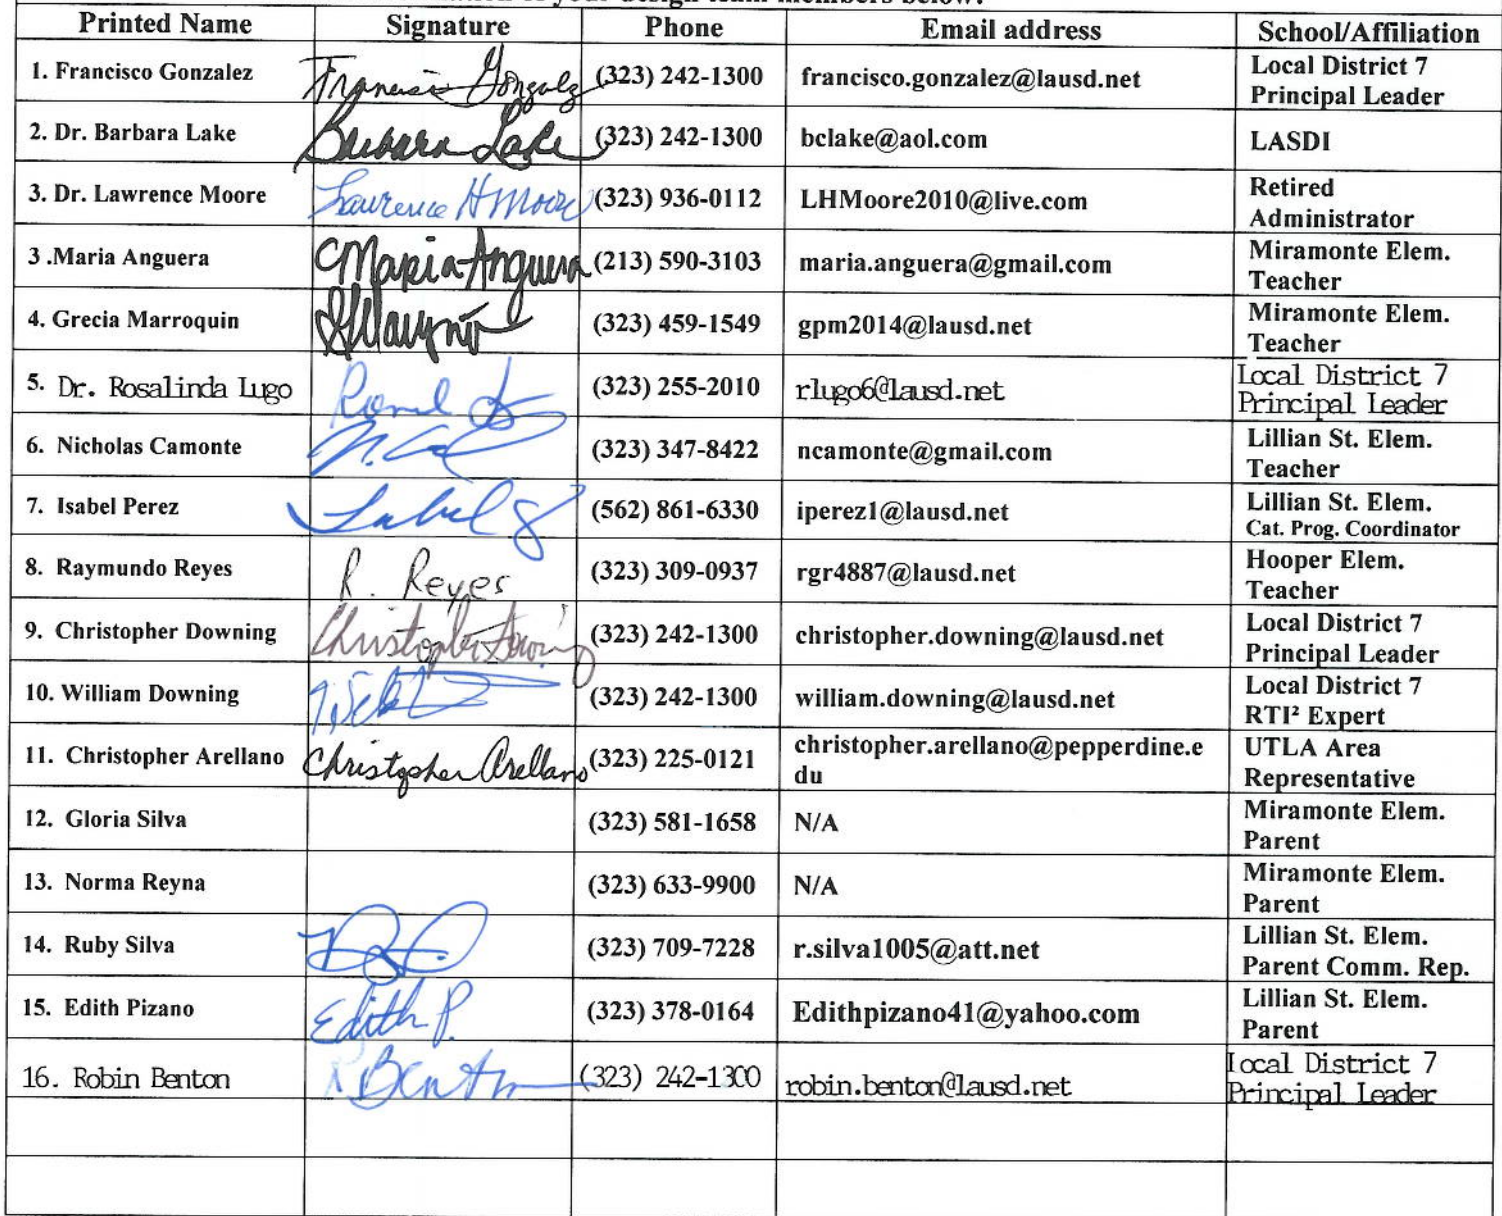 your design team members below:
Printed Name Signature Phone Email address School/Affiliation
1. Francisco Gonzalez Francisco Gonzalez (323) 242-1300 francisco.gonzalez@lausd.net Local District 7
Principal Leader
2. Dr. Barbara Lake Barbara Lake (323) 242-1300 bclake@aol.com LASDI
3. Dr. Lawrence Moore Lawrence H Moore (323) 936-0112 LHMoore2010@live.com Retired
Administrator
3 .Maria Anguera Maria Anguera (213) 590-3103 maria.anguera@gmail.com Miramonte Elem.
Teacher
4. Grecia Marroquin (323) 459-1549 gpm2014@lausd.net Miramonte Elem.
Teacher
5. Dr. Rosalinda Lugo (323) 255-2010 rlugo6@lausd.net Local District 7
Principal Leader
6. Nicholas Camonte (323) 347-8422 ncamonte@gmail.com Lillian St. Elem.
Teacher
7. Isabel Perez Isabel (562) 861-6330 iperez1@lausd.net Lillian St. Elem.
Cat. Prog. Coordinator
8. Raymundo Reyes R. Reyes (323) 309-0937 rgr4887@lausd.net Hooper Elem.
Teacher
9. Christopher Downing Christopher Downing (323) 242-1300 christopher.downing@lausd.net Local District 7
Principal Leader
10. William Downing (323) 242-1300 william.downing@lausd.net Local District 7
RTI² Expert
11. Christopher Arellano Christopher Arellano (323) 225-0121 christopher.arellano@pepperdine.e UTLA Area
du Representative
12. Gloria Silva (323) 581-1658 N/A Miramonte Elem.
Parent
13. Norma Reyna (323) 633-9900 N/A Miramonte Elem.
Parent
14. Ruby Silva (323) 709-7228 r.silva1005@att.net Lillian St. Elem.
Parent Comm. Rep.
15. Edith Pizano Edith P. (323) 378-0164 Edithpizano41@yahoo.com Lillian St. Elem.
Parent
16. Robin Benton R Benton (323) 242-1300 robin.benton@lausd.net Local District 7
Principal Leader